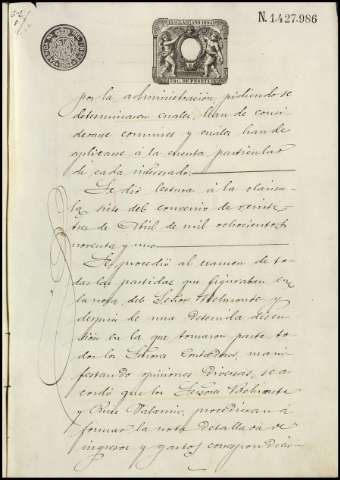 N.1.427.986
por la administración, pidiendo se
determinaran cuales han de consi-
derarse comunes y cuales han de
aplicarse á la cuenta particular
de cada interesado.
Se dió lectura á la cláusu-
la siete del convenio de veinte
de Abril de mil ochocientos
noventa y uno
Se procedió al examen de to-
das las partidas que figuraban en
la nota del Señor Belmonte y
después de una detenida discu-
sión en la que tomaron parte to-
dos los Señores Contadores, mani-
festando opiniones diversas, se a-
cordó que los Señores Belmonte
y Ruiz procedieran á
formar la nota detallada de
ingresos y gastos correspondien-